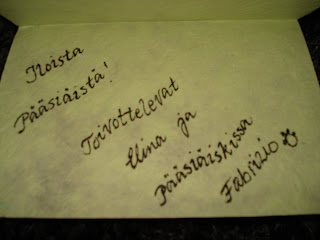 Iloista
Pääsiäistä!
Toivottelevat
Elina ja
Pääsiäiskissa
Fabrizio